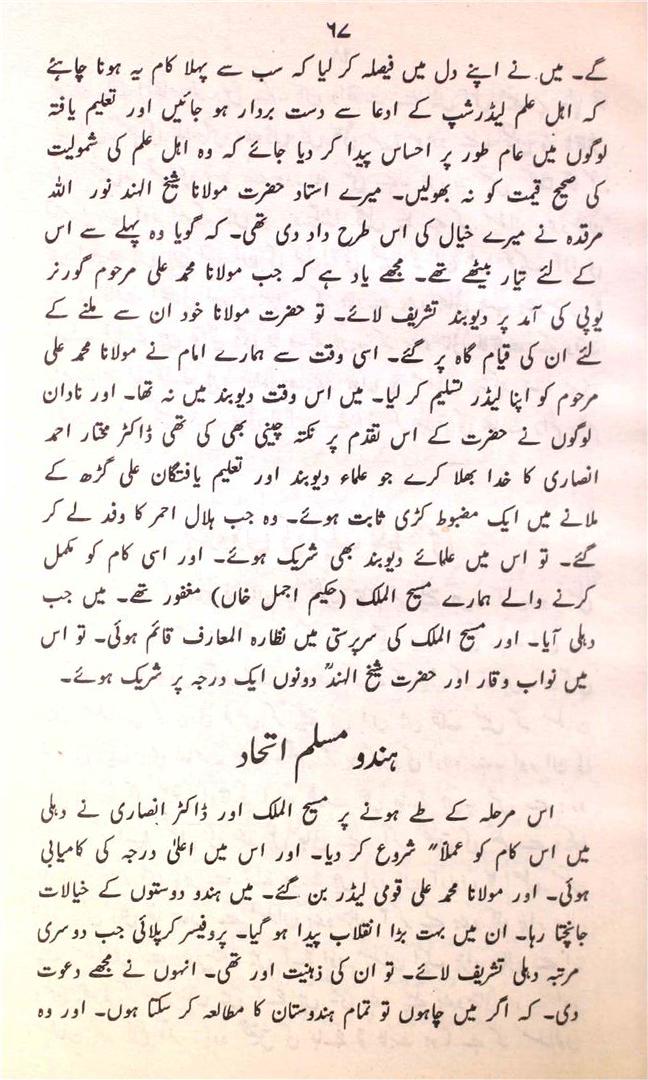 ۶۷
گے۔ میں نے اپنے دل میں فیصلہ کر لیا کہ سب سے پہلا کام یہ ہونا چاہئے
کہ اہل علم لیڈرشپ کے ادعا سے دست بردار ہو جائیں اور تعلیم یافتہ
لوگوں میں عام طور پر احساس پیدا کر دیا جائے کہ وہ اہل علم کی شمولیت
کی صحیح قیمت کو نہ بھولیں۔ میرے استاد حضرت مولانا شیخ الہند نور اللہ
مرقدہ نے میرے خیال کی اس طرح داد دی تھی۔ کہ گویا وہ پہلے سے اس
کے لئے تیار بیٹھے تھے۔ مجھے یاد ہے کہ جب مولانا محمد علی مرحوم گورنر
یوپی کی آمد پر دیوبند تشریف لائے۔ تو حضرت مولانا خود ان سے ملنے کے
لئے ان کی قیام گاہ پر گئے۔ اسی وقت سے ہمارے امام نے مولانا محمد علی
مرحوم کو اپنا لیڈر تسلیم کر لیا۔ میں اس وقت دیوبند میں نہ تھا۔ اور نادان
لوگوں نے حضرت کے اس تقدم پر نکتہ چینی بھی کی تھی ڈاکٹر مختار احمد
انصاری کا خدا بھلا کرے جو علماء دیوبند اور تعلیم یافتگان علی گڑھ کے
ملانے میں ایک مضبوط کڑی ثابت ہوئے۔ وہ جب ہلال احمر کا وفد لے کر
گئے۔ تو اس میں علمائے دیوبند بھی شریک ہوئے۔ اور اسی کام کو مکمل
کرنے والے ہمارے مسیح الملک (حکیم اجمل خاں) مغفور تھے۔ میں جب
دہلی آیا۔ اور مسیح الملک کی سرپرستی میں نظارہ المعارف قائم ہوئی۔ تو اس
میں نواب وقار اور حضرت شیخ الہندؒ دونوں ایک درجہ پر شریک ہوئے۔
ہندو مسلم اتحاد
اس مرحلہ کے طے ہونے پر مسیح الملک اور ڈاکٹر انصاری نے دہلی
میں اس کام کو عملاً" شروع کر دیا۔ اور اس میں اعلیٰ درجہ کی کامیابی
ہوئی۔ اور مولانا محمد علی قومی لیڈر بن گئے۔ میں ہندو دوستوں کے خیالات
جانچتا رہا۔ ان میں بہت بڑا انقلاب پیدا ہو گیا۔ پروفیسر کرپلائی جب دوسری
مرتبہ دہلی تشریف لائے۔ تو ان کی ذہنیت اور تھی۔ انہوں نے مجھے دعوت
دی۔ کہ اگر میں چاہوں تو تمام ہندوستان کا مطالعہ کر سکتا ہوں۔ اور وہ